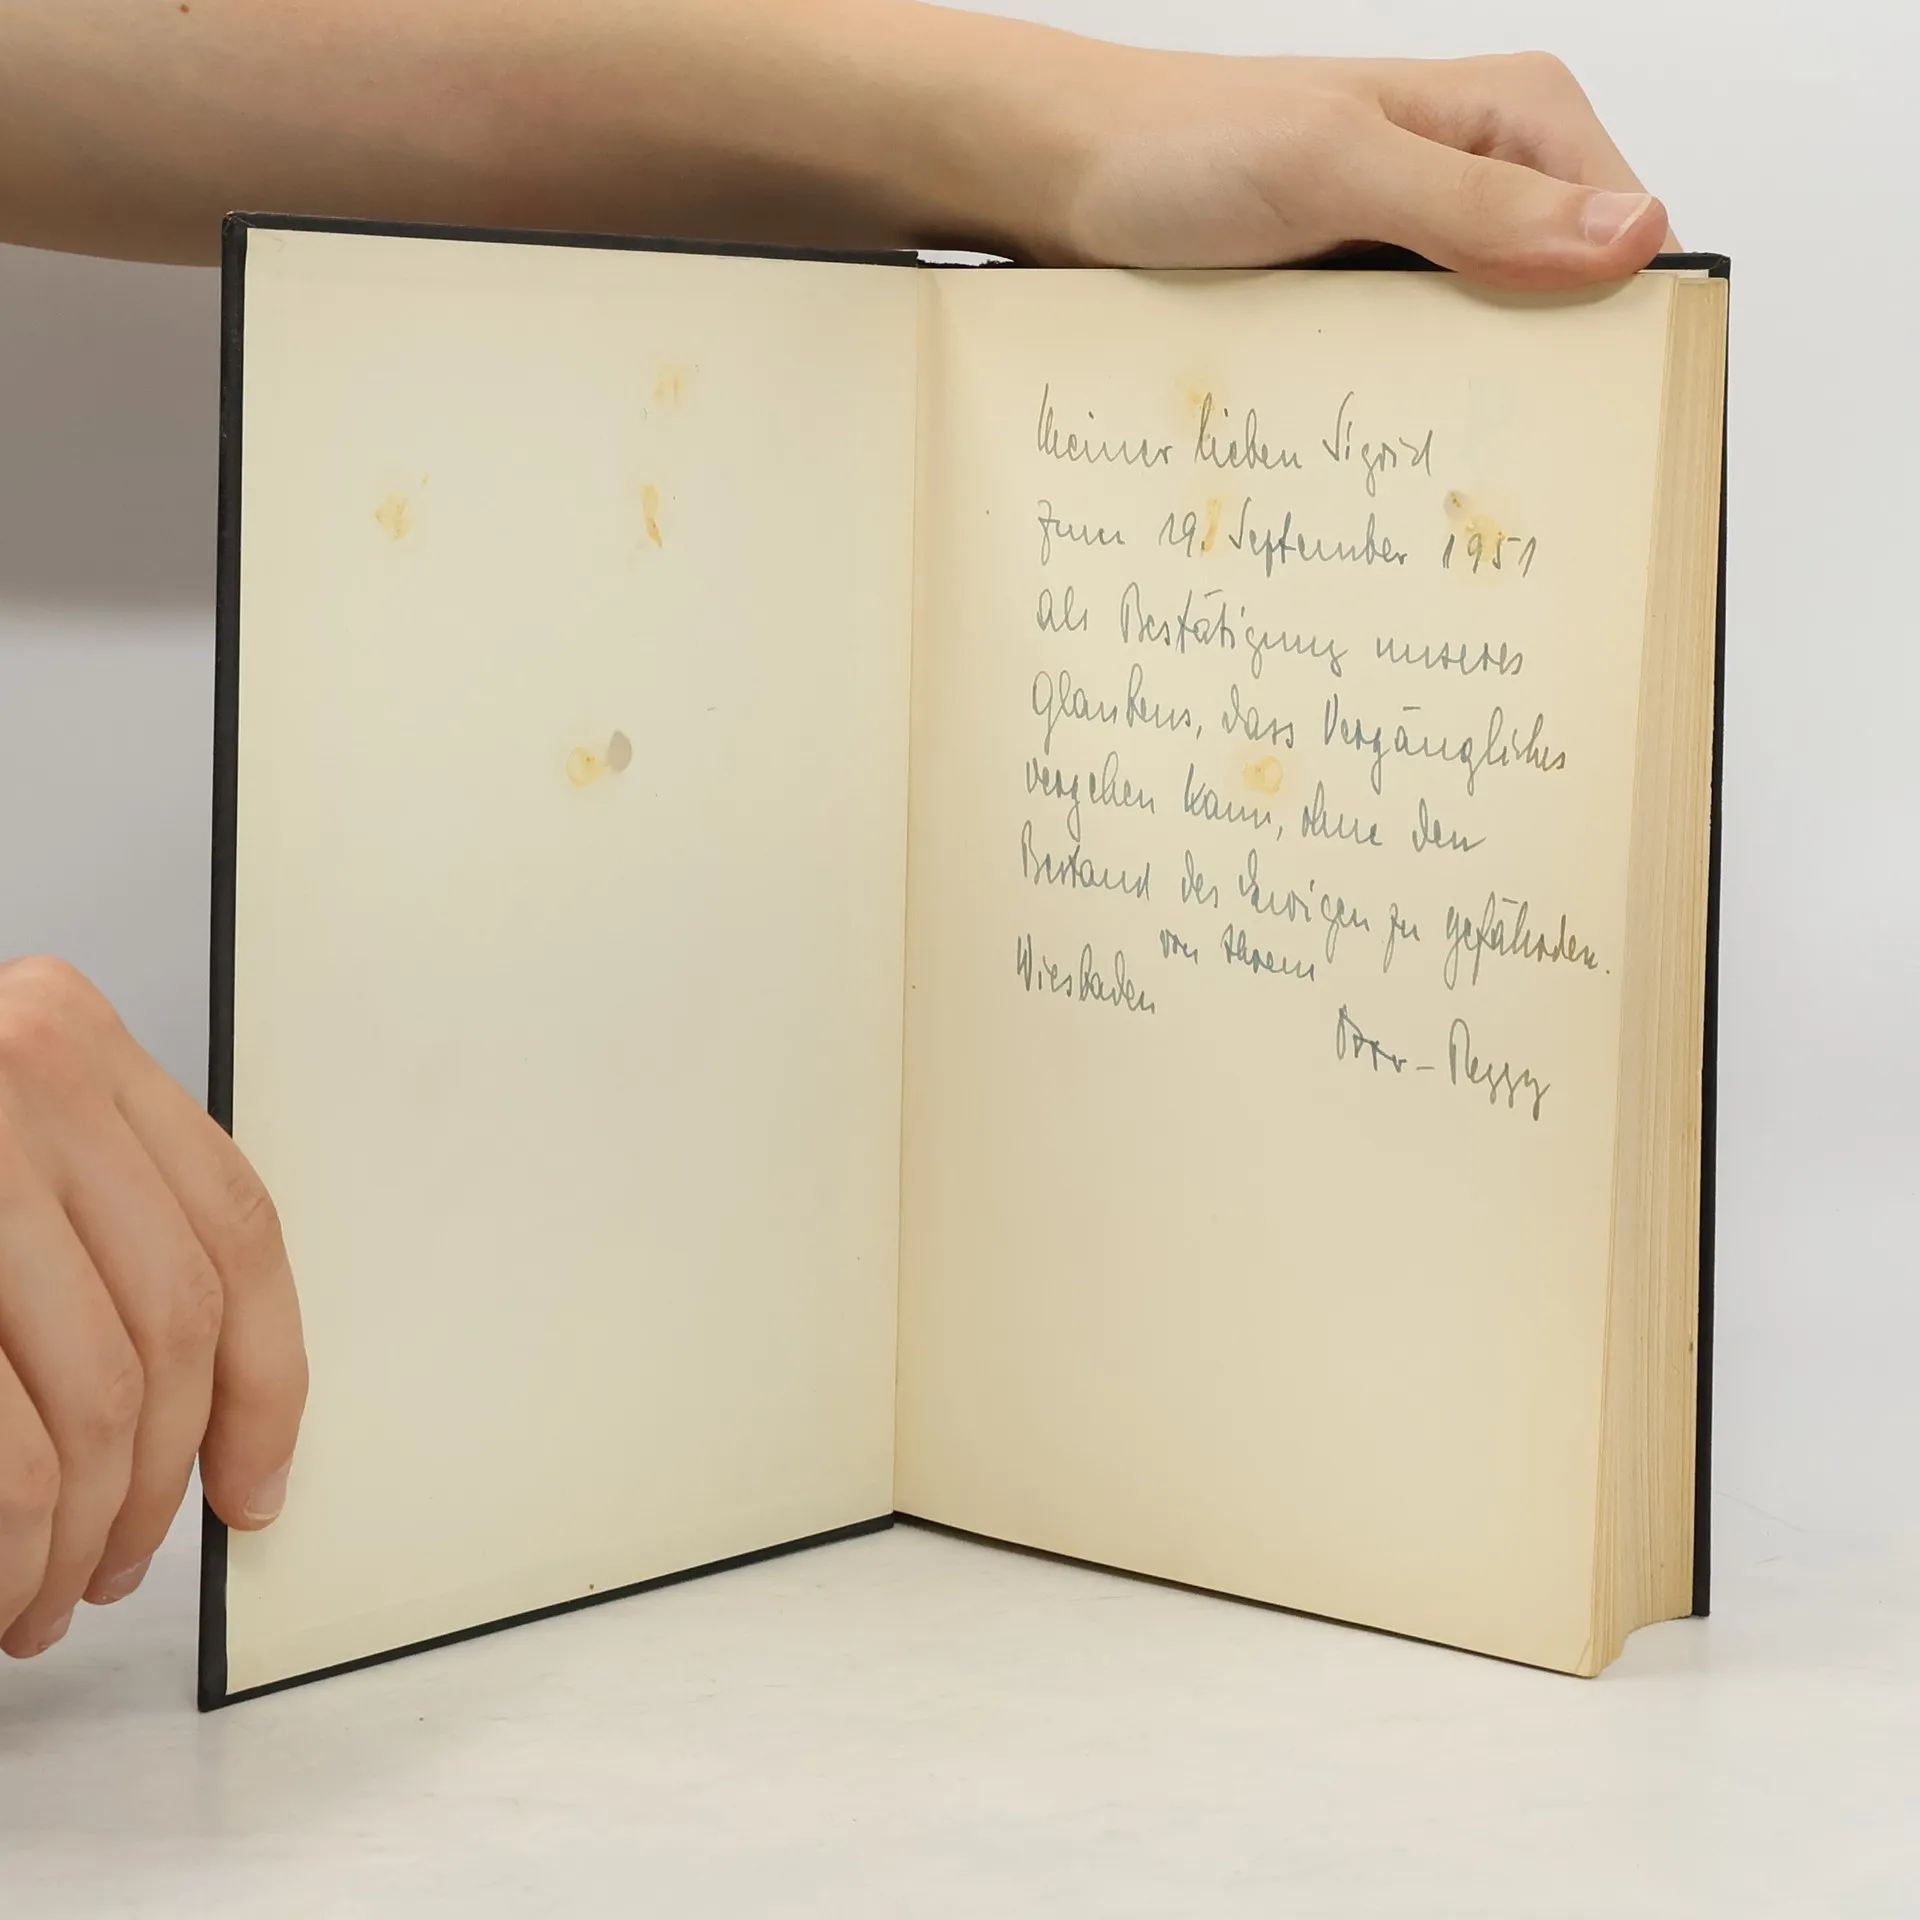 Meiner lieben Sigrid
zum 19. September 1951
als Bestätigung unseres
Glaubens, dass Vergängliches
vergehen kann, ohne den
Bestand des Ewigen zu gefährden.
von Ihrem
Wiesbaden
Peggy